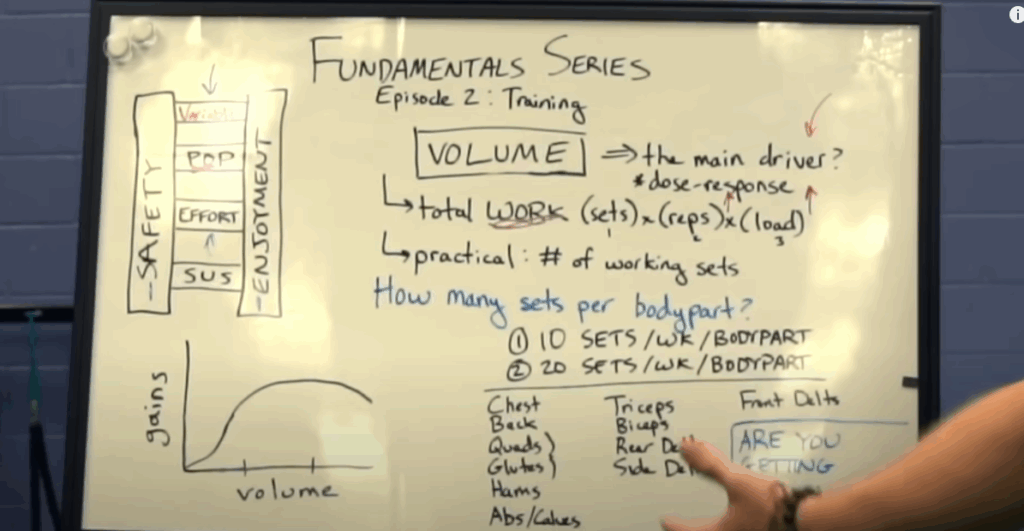 FUNDAMENTALS SERIES
Episode 2: Training
VOLUME ⇒ the main driver?
* dose-response
↳ total WORK (sets) x (reps) x (load)
1 2 3
↳ practical: # of working sets
How many sets per bodypart?
① 10 SETS/WK/BODYPART
② 20 SETS/WK/BODYPART
Chest
Back
Quads}
Glutes}
Hams
Abs/Calves
Triceps
Biceps
Rear De
Side De
Front Delts
ARE YOU
GETTING
-SAFETY
POP
EFFORT
SUS
-ENJOYMENT
gains
volume